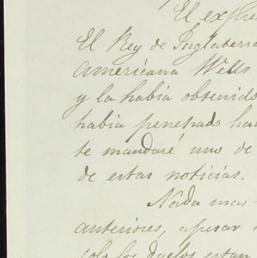 El expre
El Rey de Inglaterra
americana Wells
y la habia obtenido
habia penetrado ha
te mandaré uno de
de estas noticias.
Nada mas
anteriores, apesar
solo los duelos estan